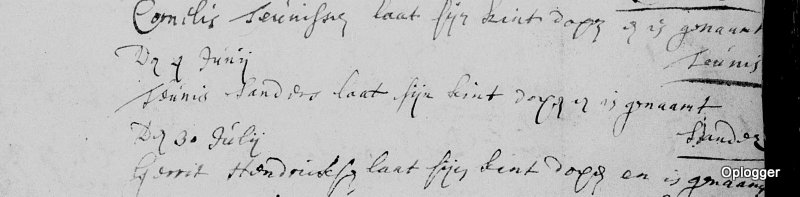 Cornelis Teunisse laat sijn kint dopen en is genaamt
Teunis
Den 4 Junij
Teunis Sanders laat sijn kint dopen en is genaamt
Sander
Den 30 Julij
Gerrit Hendrickse laat sijn kint dopen en is genaamt
Oplogger